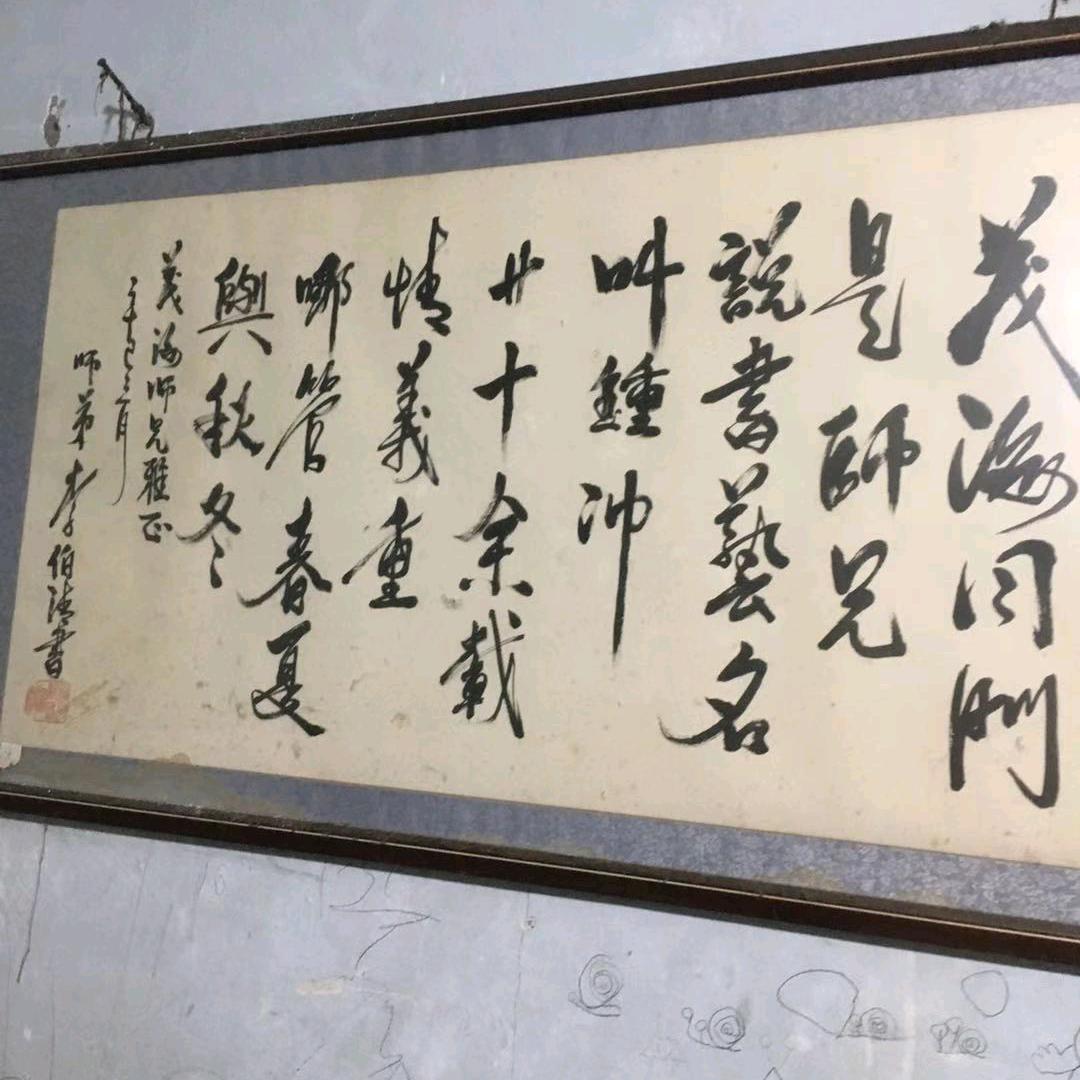 茂海同門
是師兄
說書藝名
叫鍾沖
廿十余載
情義重
哪管春夏
與秋冬
茂海师兄雅正
辛巳三月
师弟李伯清書